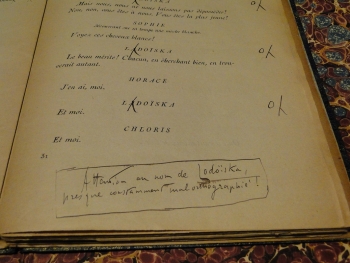 Mais nous, nous ne laissons pas
Non, non, vous êtes à nous. Vous êtes la plus jeune!
SOPHIE
Voyez ces cheveux blancs!
LADOÏSKA
Le beau mérite! Chacun, en cherchant bien, en trou-
verait autant.
HORACE
J'en ai, moi.
LADOÏSKA
Et moi.
CHLORIS
Et moi.
31
Attention au nom de Lodoïska,
presque constamment mal orthographié!